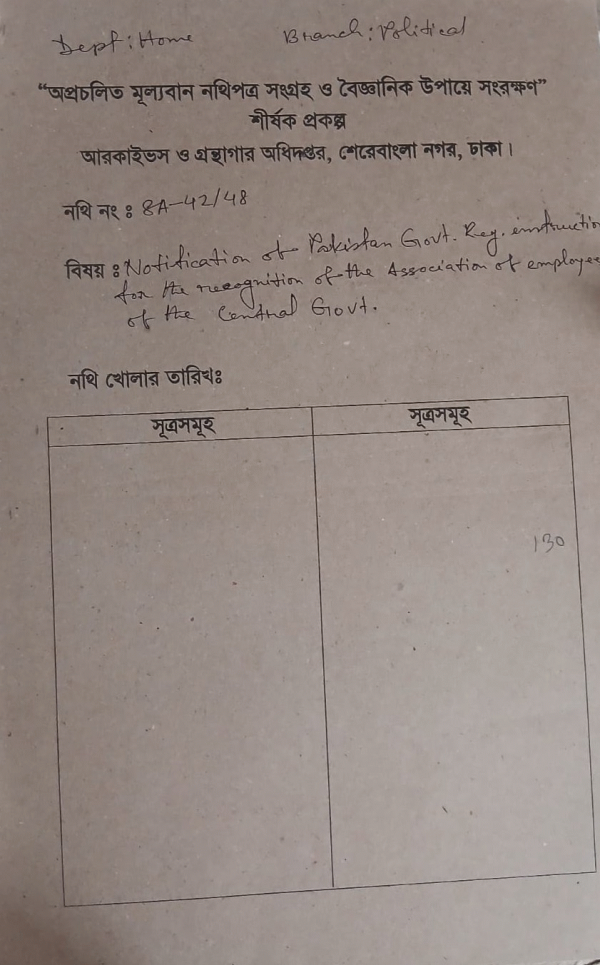 Dept: Home Branch: Political
“অপ্রচলিত মূল্যবান নথিপত্র সংগ্রহ ও বৈজ্ঞানিক উপায়ে সংরক্ষণ”
শীর্ষক প্রকল্প
আরকাইভস ও গ্রন্থাগার অধিদপ্তর, শেরেবাংলা নগর, ঢাকা।
নথি নং ঃ 8A-42/48
বিষয় ঃ Notification of Pakistan Govt. Reg. instruction
for the recognition of the Association of employee
of the Central Govt.
নথি খোলার তারিখঃ
সূত্রসমূহ সূত্রসমূহ
130